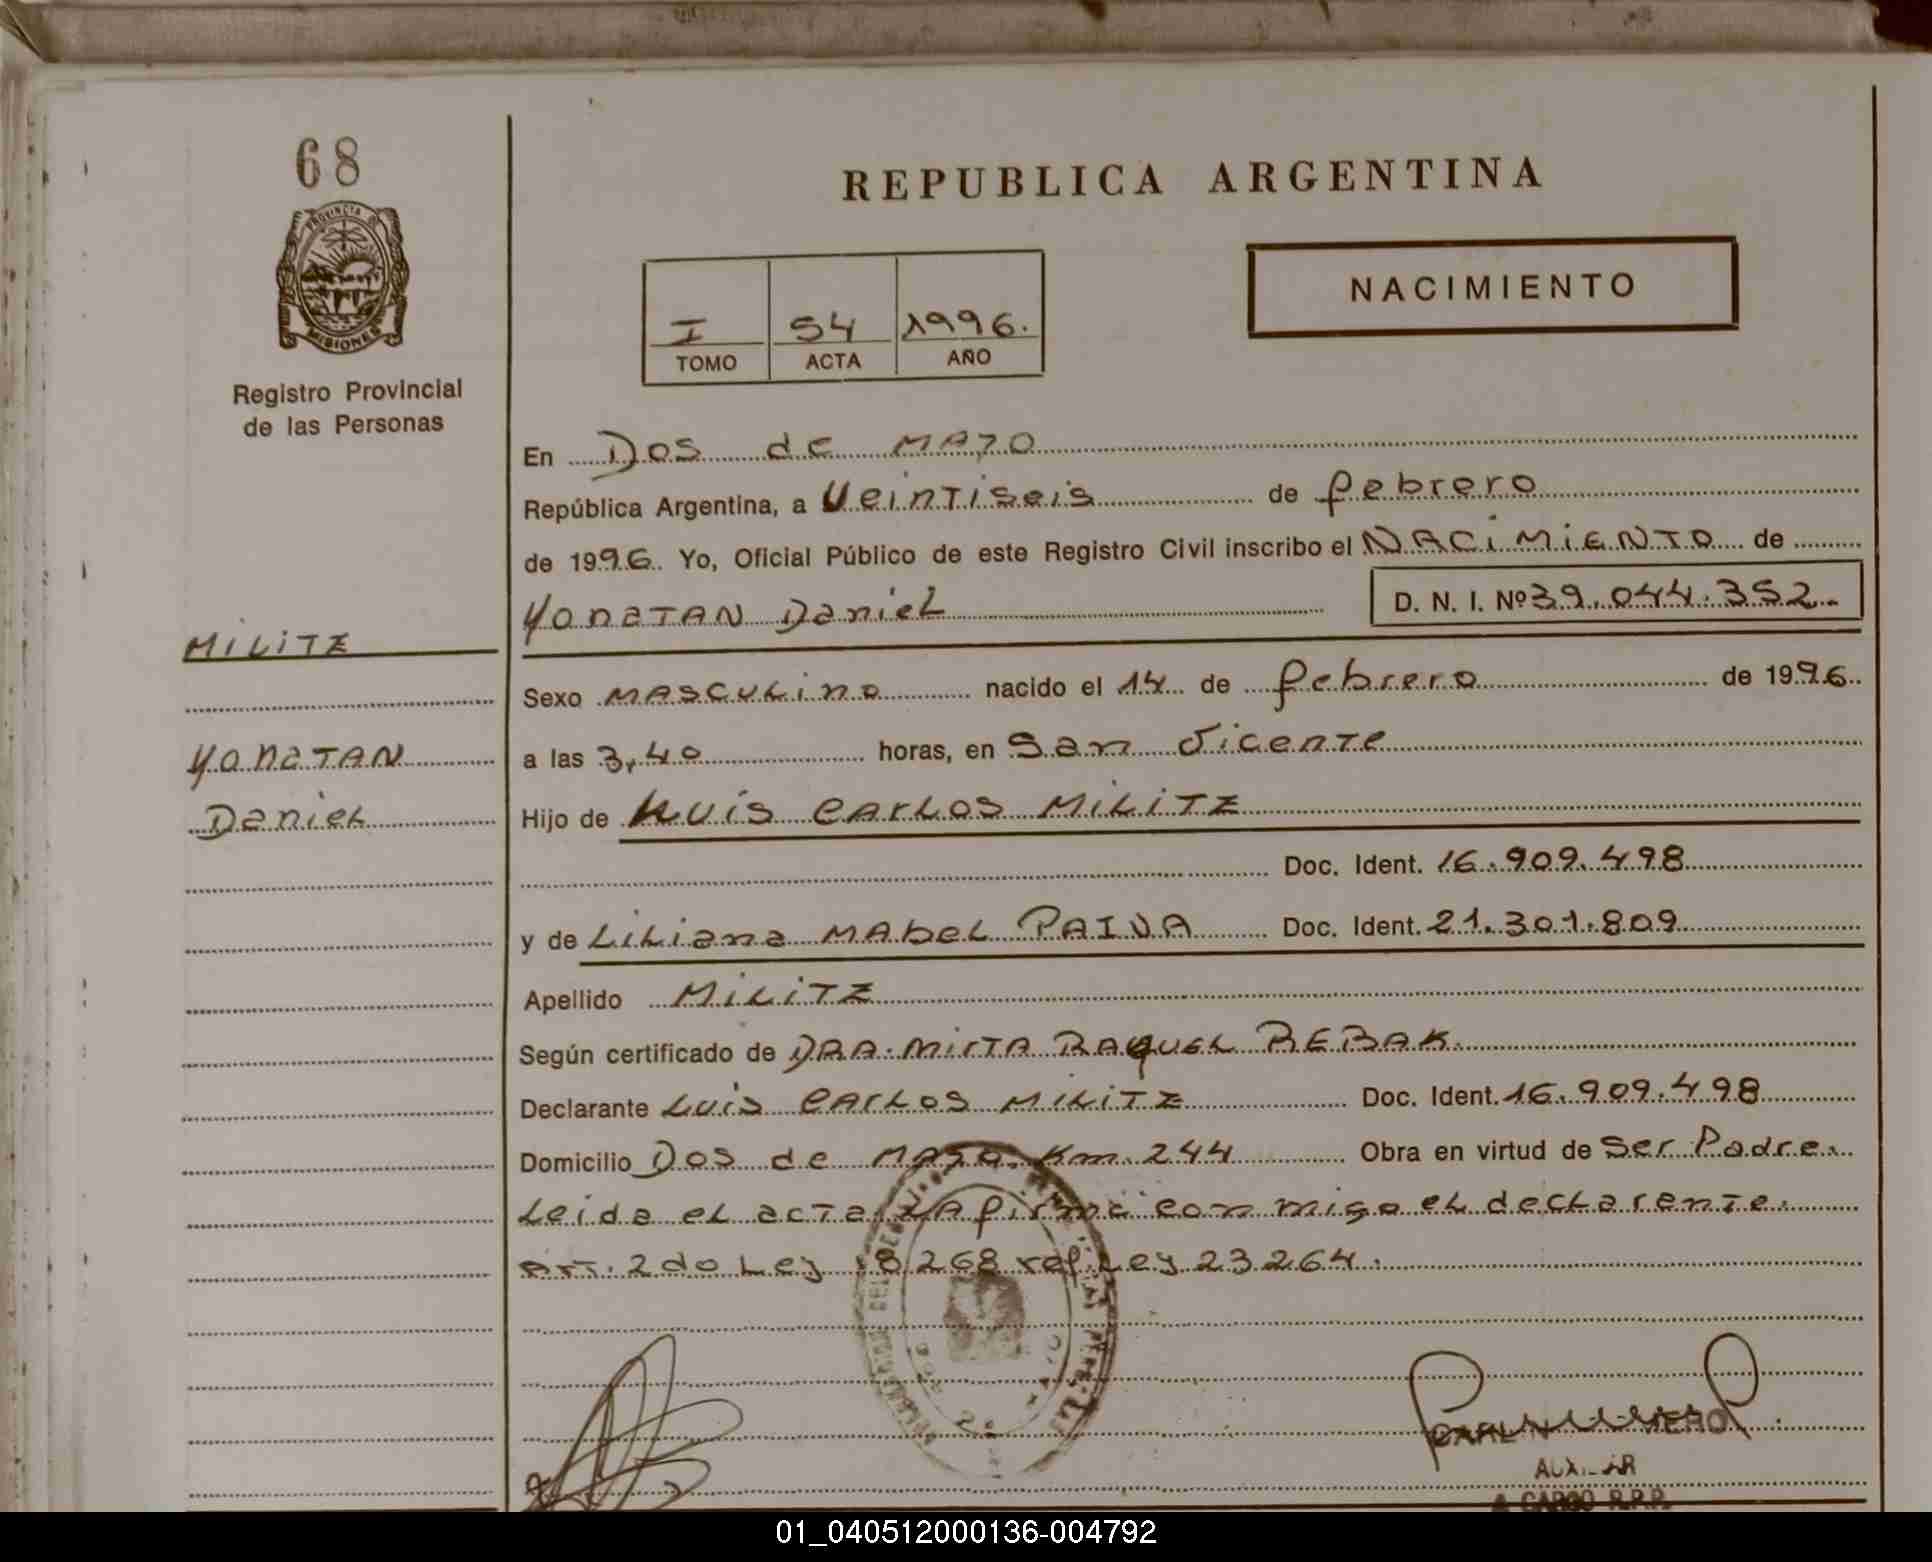 68
PROVINCIA D
MISIONES
Registro Provincial
de las Personas
REPUBLICA ARGENTINA
NACIMIENTO
I 54 1996.
TOMO ACTA AÑO
En Dos de MAYO
República Argentina, a Veintiseis de febrero
de 1996. Yo, Oficial Público de este Registro Civil inscribo el NACIMIENTO de
YonaTAN Daniel D. N. I. Nº 39.044.352.-
MILITZ
Sexo MASCULINO nacido el 14 de febrero de 1996.
YonaTAN
a las 3,40 horas, en San Vicente
Daniel
Hijo de Luis CARLOS MILITZ
Doc. Ident. 16.909.498
y de Liliana MAbeL PAIVA Doc. Ident. 21.301.809
Apellido MILITZ
Según certificado de DRA. MirTA RAQUEL REBAK.
Declarante Luis CARLOS MILITZ Doc. Ident. 16.909.498
Domicilio Dos de MAYO. Km. 244 Obra en virtud de Ser Padre.
Leida el acta, LA firma con migo el declarente.
Art. 2do Ley 18268 ref. Ley 23264.
AUXILIAR
A CARGO R.P.P.
01_040512000136-004792